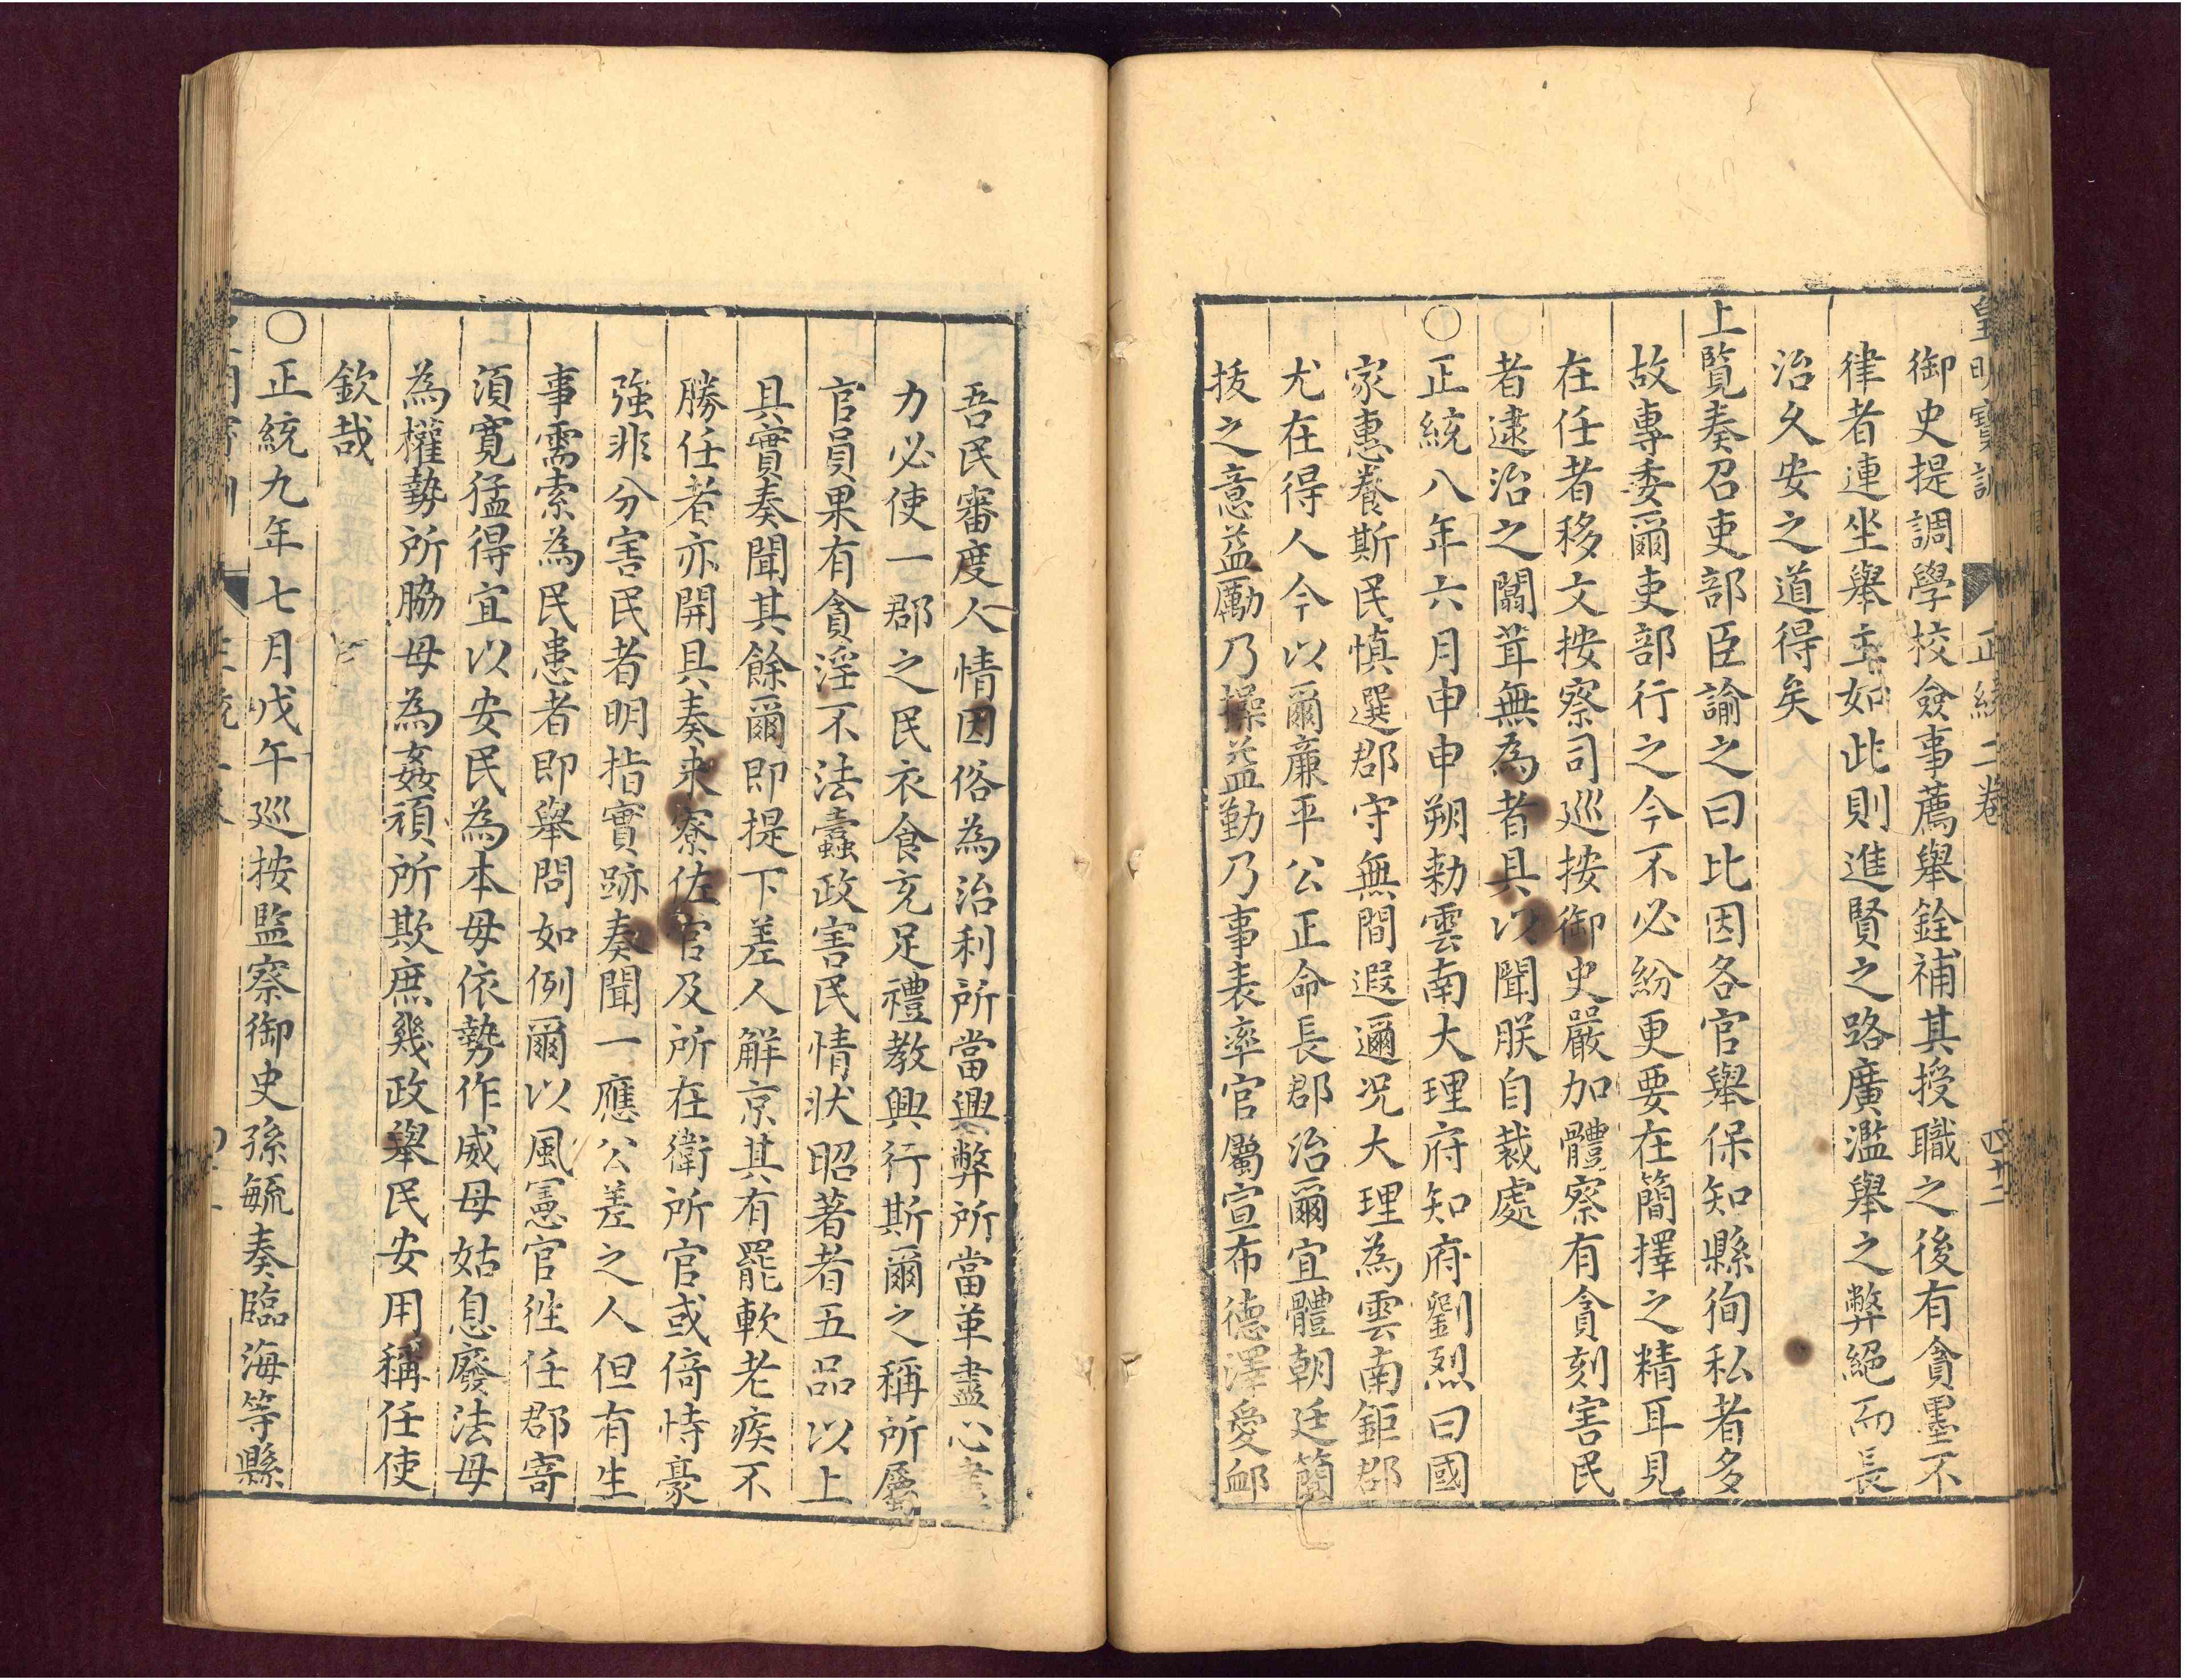 皇明寶訓 正統二卷 四十二
御史提調學校僉事薦舉銓補其授職之後有貪墨不
律者連坐舉主如此則進賢之路廣濫舉之弊絕而長
治久安之道得矣
上覽奏召吏部臣諭之曰比因各官舉保知縣徇私者多
故專委爾吏部行之今不必紛更要在簡擇之精耳見
在任者移文按察司巡按御史嚴加體察有貪刻害民
者逮治之闒茸無為者具以聞朕自裁處
○正統八年六月申申朔勑雲南大理府知府劉烈曰國
家惠養斯民慎選郡守無間遐邇况大理為雲南鉅郡
尤在得人今以爾廉平公正命長郡治爾宜體朝廷簡
拔之意益勵乃操益勤乃事表率官屬宣布德澤愛衈
吾民審度人情因俗為治利所當興弊所當革盡心
力必使一郡之民衣食充足禮教興行斯爾之稱所屬
官員果有貪淫不法蠹政害民情狀昭著者五品以上
具實奏聞其餘爾即提下差人解京其有罷軟老疾不
勝任者亦開具奏来寮佐官及所在衛所官或倚恃豪
強非分害民者明指實跡奏聞一應公差之人但有生
事需索為民患者即舉問如例爾以風憲官徃任郡寄
須寛猛得宜以安民為本毋依勢作威毋姑息廢法毋
為權勢所脇毋為姦頑所欺庶幾政舉民安用稱任使
欽哉
○正統九年七月戊午巡按監察御史孫毓奏臨海等縣